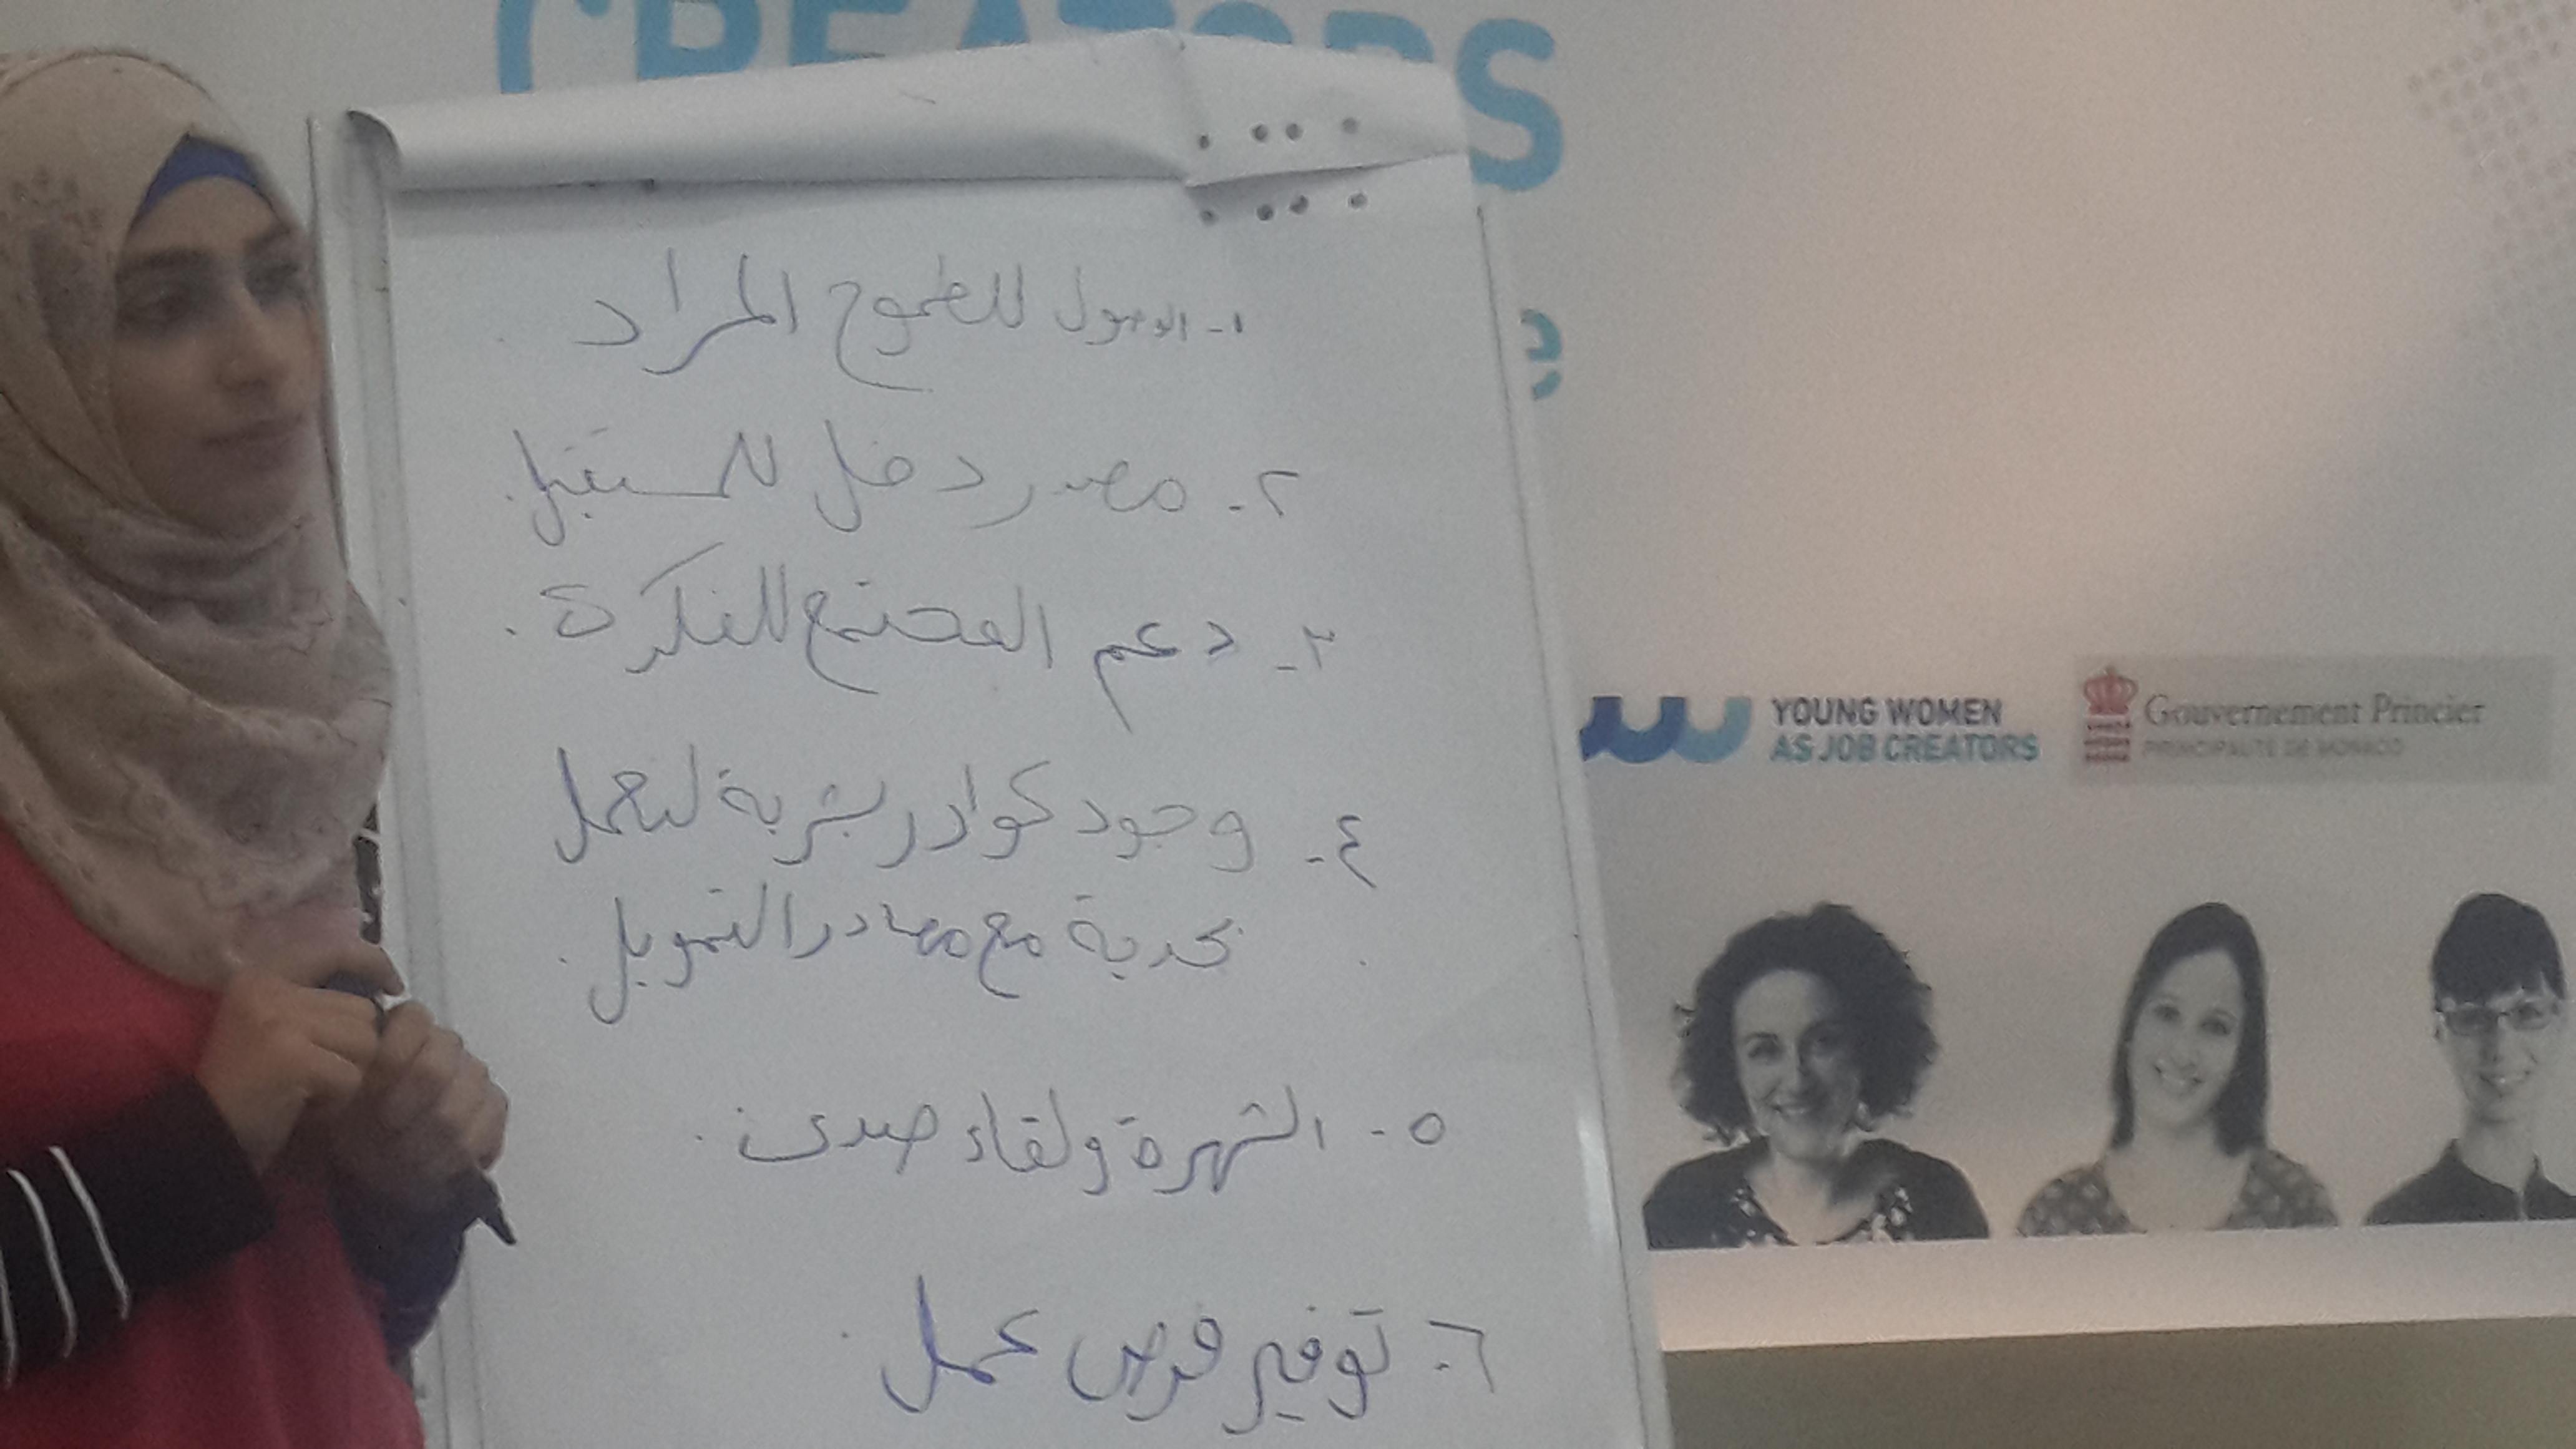 CREATORS
e
١- الوصول للطموح المراد.
٢- مصدر دخل للمستقبل.
٣- دعم المجتمع للفكرة.
٤- وجود كوادر بشرية لتعمل
بجدية مع مصادر التمويل.
٥- الشهرة ولقاء صدى.
٦- توفير فرص عمل.
YOUNG WOMEN
AS JOB CREATORS
Gouvernement Princier
PRINCIPAUTÉ DE MONACO